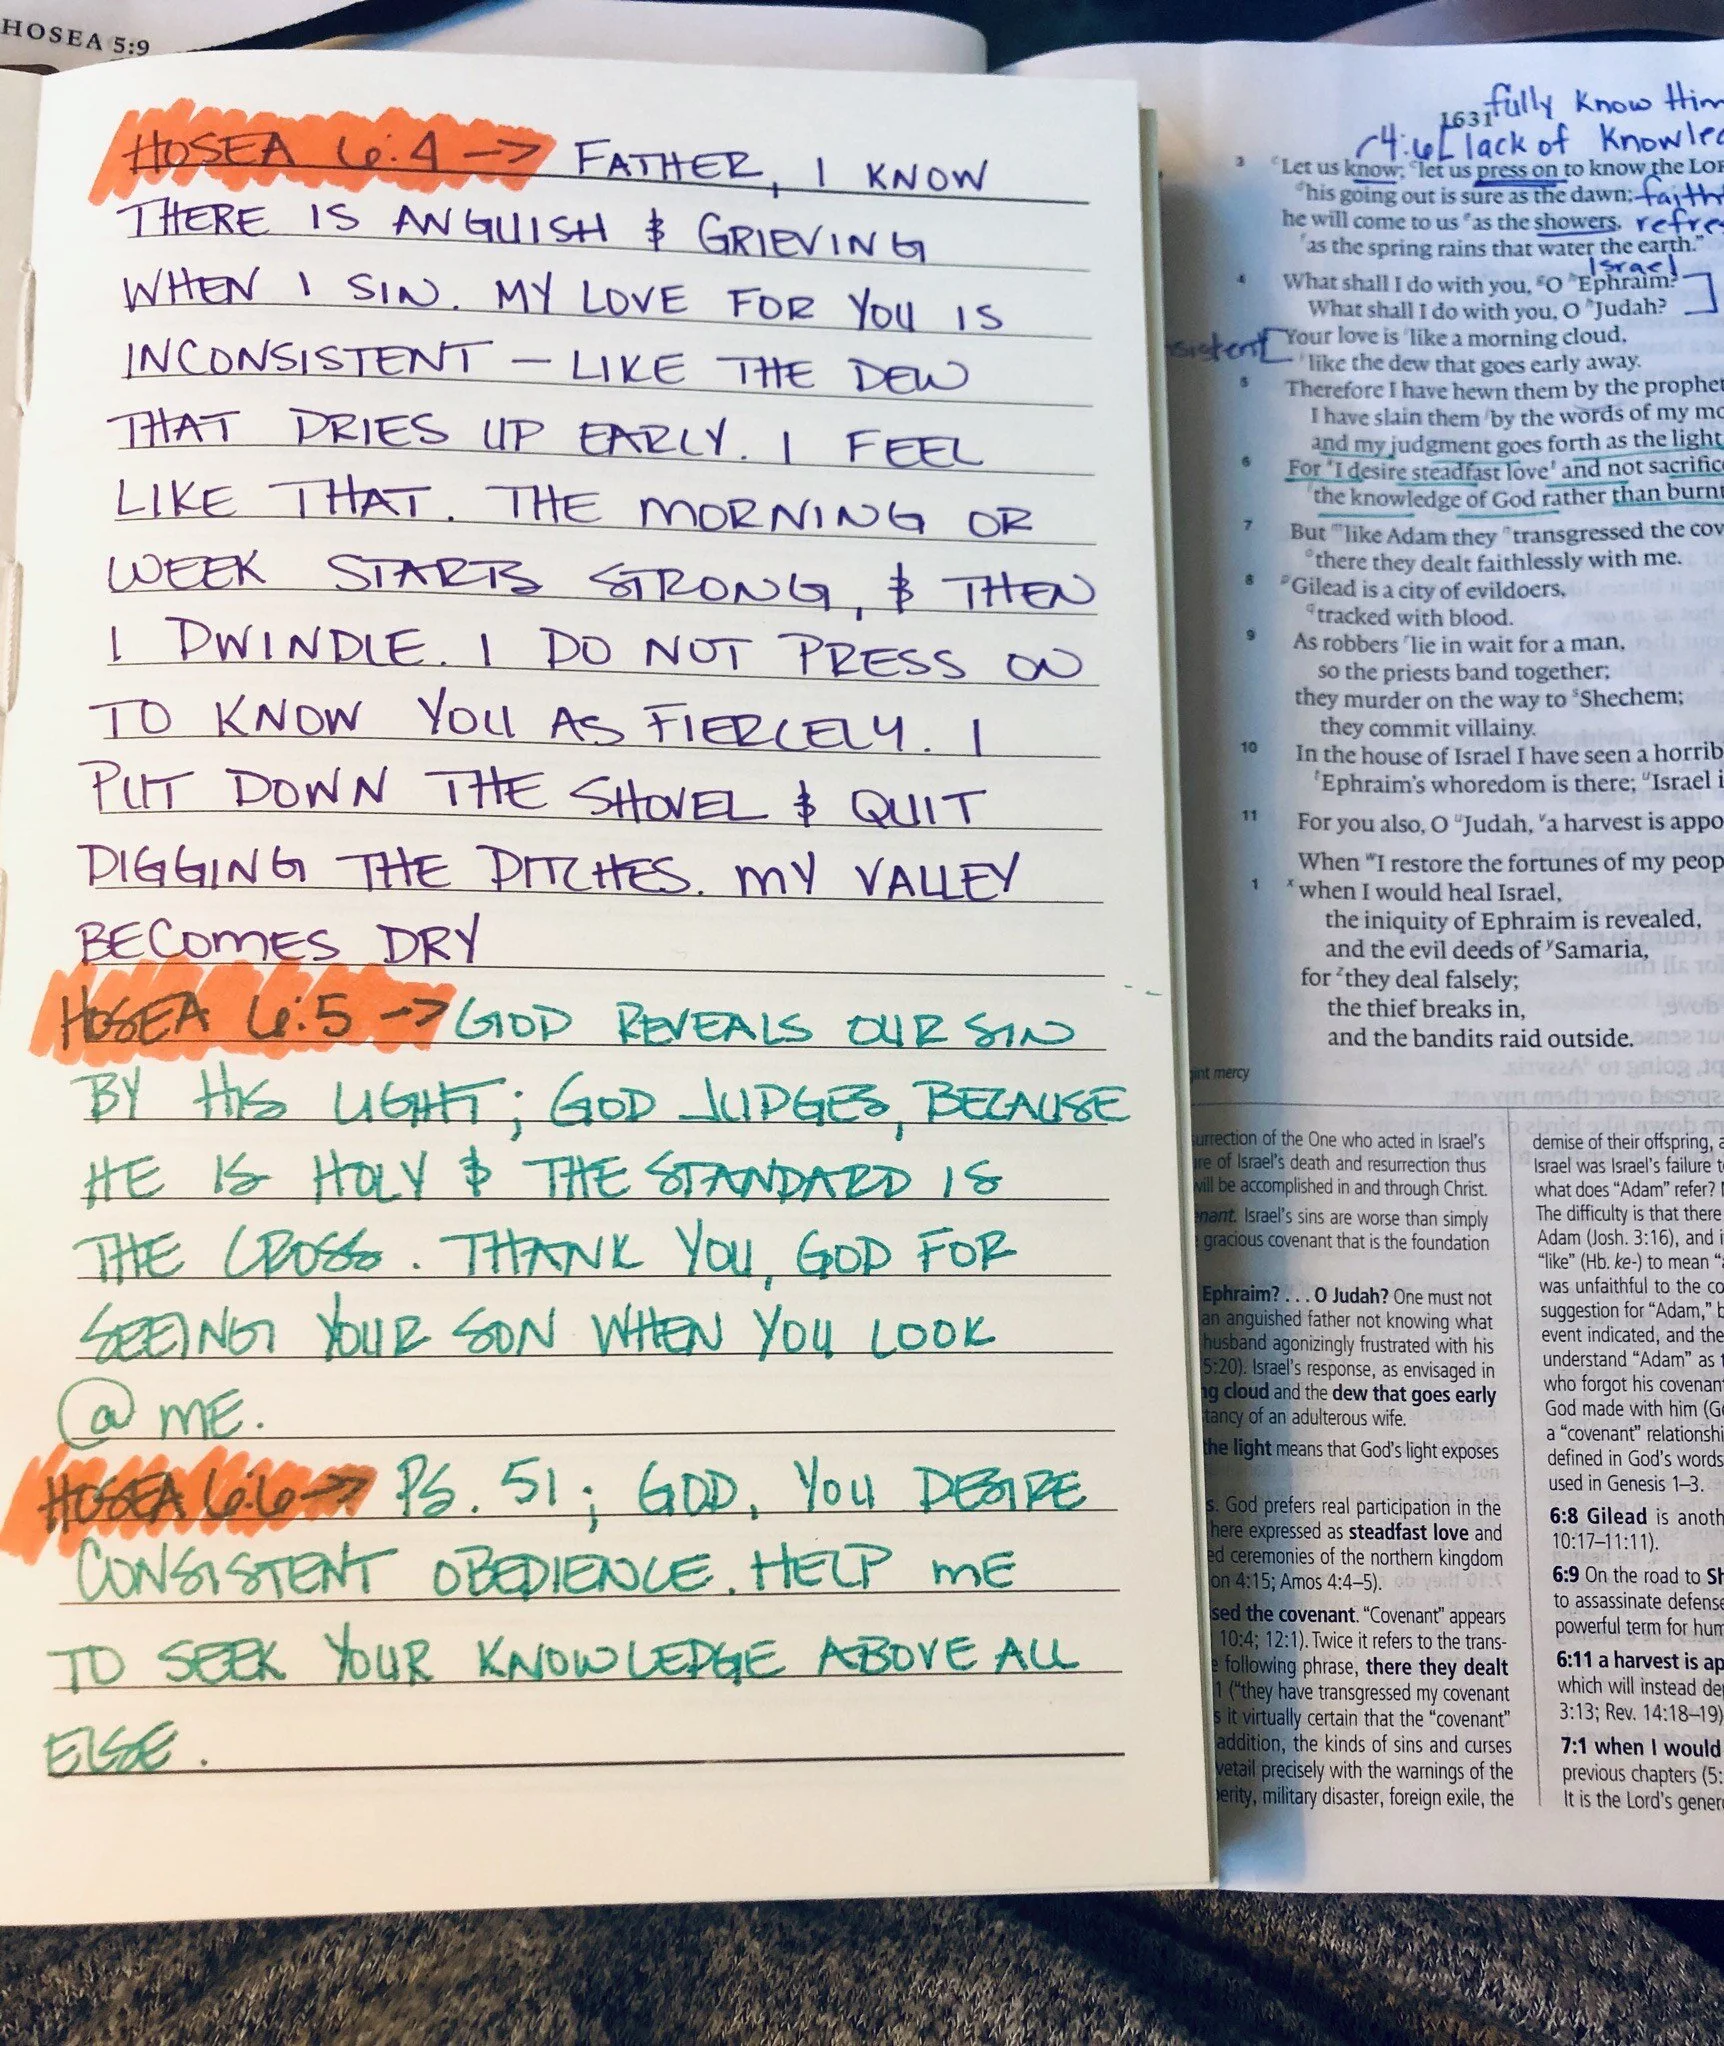 HOSEA 5:9
HOSEA 6:4 -> FATHER, I KNOW
THERE IS ANGUISH & GRIEVING
WHEN I SIN. MY LOVE FOR YOU IS
INCONSISTENT - LIKE THE DEW
THAT DRIES UP EARLY. I FEEL
LIKE THAT. THE MORNING OR
WEEK STARTS STRONG, & THEN
I DWINDLE. I DO NOT PRESS ON
TO KNOW YOU AS FIERCELY. I
PUT DOWN THE SHOVEL & QUIT
DIGGING THE DITCHES. MY VALLEY
BECOMES DRY
HOSEA 6:5 -> GOD REVEALS OUR SIN
BY HIS LIGHT; GOD JUDGES, BECAUSE
HE IS HOLY & THE STANDARD IS
THE CROSS. THANK YOU, GOD FOR
SEEING YOUR SON WHEN YOU LOOK
@ ME.
HOSEA 6:6 -> PS. 51; GOD, YOU DESIRE
CONSISTENT OBEDIENCE. HELP ME
TO SEEK YOUR KNOWLEDGE ABOVE ALL
ELSE.
1631 fully know Him
4:6 [lack of knowle
3 Let us know; let us press on to know the LOR
his going out is sure as the dawn; faith
he will come to us as the showers, refre
as the spring rains that water the earth."
Israel
4 What shall I do with you, O Ephraim?
What shall I do with you, O Judah?
sistent [ Your love is like a morning cloud,
like the dew that goes early away.
5 Therefore I have hewn them by the prophet
I have slain them by the words of my mo
and my judgment goes forth as the light
6 For I desire steadfast love and not sacrific
the knowledge of God rather than burnt
7 But like Adam they transgressed the cov
there they dealt faithlessly with me.
8 Gilead is a city of evildoers,
tracked with blood.
9 As robbers lie in wait for a man,
so the priests band together;
they murder on the way to Shechem;
they commit villainy.
10 In the house of Israel I have seen a horrib
Ephraim's whoredom is there; Israel i
11 For you also, O Judah, a harvest is appo
When I restore the fortunes of my peop
1 when I would heal Israel,
the iniquity of Ephraim is revealed,
and the evil deeds of Samaria,
for they deal falsely;
the thief breaks in,
and the bandits raid outside.
mercy
urrection of the One who acted in Israel's
re of Israel's death and resurrection thus
will be accomplished in and through Christ.
enant. Israel's sins are worse than simply
gracious covenant that is the foundation
Ephraim? . . . O Judah? One must not
an anguished father not knowing what
husband agonizingly frustrated with his
5:20). Israel's response, as envisaged in
ng cloud and the dew that goes early
tancy of an adulterous wife.
the light means that God's light exposes
s. God prefers real participation in the
here expressed as steadfast love and
ed ceremonies of the northern kingdom
on 4:15; Amos 4:4–5).
sed the covenant. "Covenant" appears
10:4; 12:1). Twice it refers to the trans-
e following phrase, there they dealt
1 ("they have transgressed my covenant
s it virtually certain that the "covenant"
addition, the kinds of sins and curses
vetail precisely with the warnings of the
erity, military disaster, foreign exile, the
demise of their offspring, a
Israel was Israel's failure t
what does "Adam" refer?
The difficulty is that there
Adam (Josh. 3:16), and i
"like" (Hb. ke-) to mean "a
was unfaithful to the co
suggestion for "Adam," b
event indicated, and the
understand "Adam" as t
who forgot his covenan
God made with him (Ge
a "covenant" relationshi
defined in God's words
used in Genesis 1–3.
6:8 Gilead is anoth
10:17–11:11).
6:9 On the road to Sh
to assassinate defense
powerful term for hum
6:11 a harvest is ap
which will instead de
3:13; Rev. 14:18–19)
7:1 when I would
previous chapters (5:
It is the Lord's gener